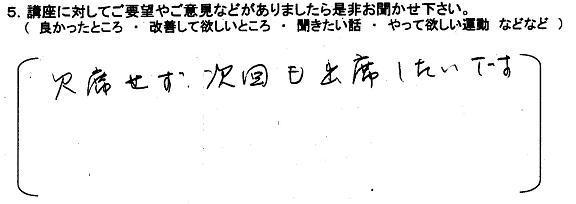 5. 講座に対してご要望やご意見などがありましたら是非お聞かせ下さい。
( 良かったところ ・ 改善して欲しいところ ・ 聞きたい話 ・ やって欲しい運動 などなど )
欠席せず、次回も出席したいです